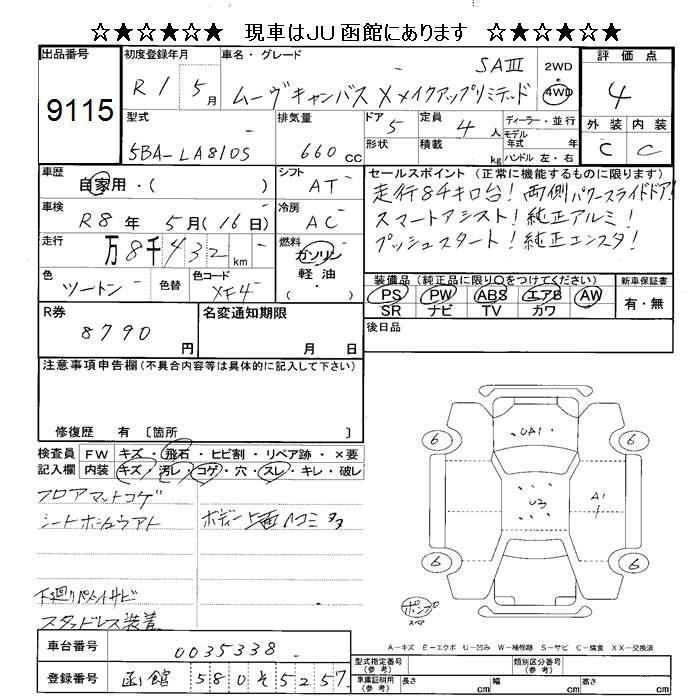 ☆★☆★☆★ 現車はJU函館にあります ☆★☆★☆★
出品番号
9115
初度登録年月
R1 5月
車名・グレード
SAⅢ
ムーヴキャンバス Xメイクアップリミテッド
2WD
4WD
評価点
4
外装 内装
C C
型式
5BA-LA810S
排気量
660 CC
ドア 5
形状
定員 4人
積載 kg
ディーラー・並行
モデル
年式 年
ハンドル 左・右
車歴
自家用・( )
シフト
AT
車検
R8年 5月(16日)
冷房
AC
走行
万8千432km
燃料
ガソリン
軽油
( )
色
ツートン
色替
色コード
XF4
セールスポイント (正常に機能するものに限ります)
走行8千キロ台! 両側パワースライドドア!
スマートアシスト! 純正アルミ!
プッシュスタート! 純正エンスタ!
装備品(純正品に限り○をつけてください)
PS PW ABS エアB AW
SR ナビ TV カワ
新車保証書
有・無
後日品
R券
8790 円
名変通知期限
月 日
注意事項申告欄(不具合内容等は具体的に記入して下さい)
修復歴 有 〔箇所 〕
検査員
記入欄
FW キズ・飛石・ヒビ割・リペア跡・×要
内装 キズ・汚レ・コゲ・穴・スレ・キレ・破レ
フロアマットコゲ
シートホシュウアト
ボディー上面ハコミ多
下廻りパーツサビ
スタッドレス装着
6 6
UA1
U3
A1
6 6
ポンプ
スペア
A-キズ E-エクボ U-凹み W-補修跡 S-サビ C-腐食 XX-交換済
車台番号
0035338
登録番号
函館 580 そ 5257
型式指定番号
(参考)
類別区分番号
(参考)
車庫証明用
(参考)
長さ cm
幅 cm
高さ cm